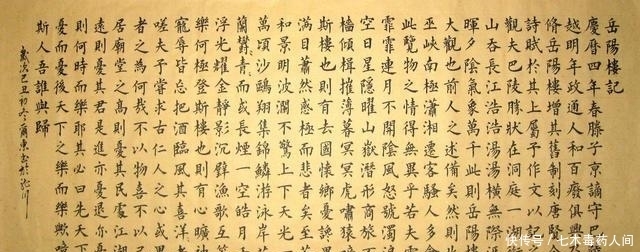 岳陽樓記
慶曆四年春滕子京謫守
越明年政通人和百廢俱興
脩岳陽樓增其舊制刻唐賢
詩賦於其上屬予作文以記
觀夫巴陵勝狀在洞庭一湖
山吞長江浩浩湯湯橫無際
暉夕陰氣象萬千此則岳陽
大觀也前人之述備矣然則
巫峽南極瀟湘遷客騷人多
此覽物之情得無異乎若夫霪
霏霏連月不開陰風怒號濁
空日星隱曜山嶽潛形商旅
檣傾楫摧薄暮冥冥虎嘯猿
斯樓也則有去國懷鄉憂讒
滿目蕭然感極而悲者矣至
和景明波瀾不驚上下天光
萬頃沙鷗翔集錦鱗游泳岸
蘭鬱青青而或長煙一空皓月
浮光耀金靜影沉璧漁歌互
樂何極登斯樓也則有心曠
寵辱皆忘把酒臨風其喜洋
嗟夫予嘗求古仁人之心或異
者之為何哉不以物喜不以
居廟堂之高則憂其民處江湖
遠則憂其君是進亦憂退亦
則何時而樂耶其必曰先天
憂而憂後天下之樂而樂歟
斯人吾誰與歸
歲次己丑初冬
快传号/七木毒药人间